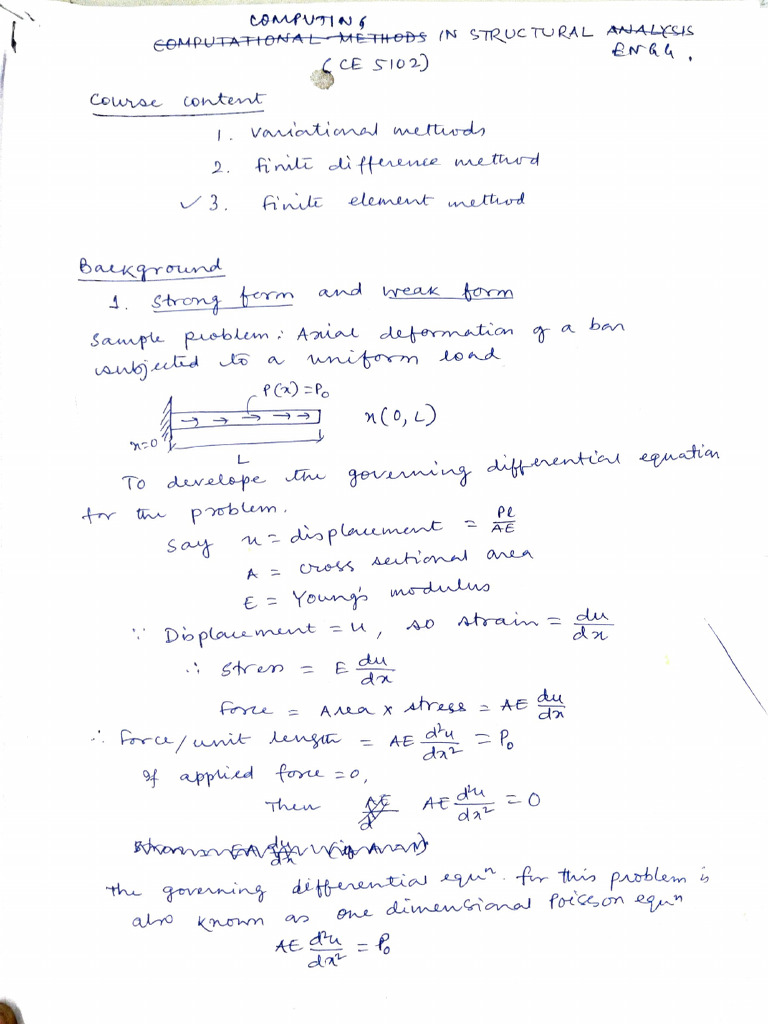 COMPUTING
COMPUTATIONAL METHODS IN STRUCTURAL ANALYSIS
ENGG.
(CE 5102)
Course content
1. Variational methods
2. finite difference method
✓ 3. Finite element method
Background
1. Strong form and weak form
Sample problem: Axial deformation of a bar
subjected to a uniform load
P(x) = P₀
x=0
x(0, L)
L
To develope the governing differential equation
for the problem.
Say u = displacement = Pl/AE
A = cross sectional area
E = Young's modulus
∵ Displacement = u, so strain = du/dx
∴ Stress = E du/dx
Force = Area x stress = AE du/dx
∴ Force/unit length = AE d²u/dx² = P₀
If applied force = 0,
Then AE/d AE d²u/dx² = 0
The governing differential equⁿ. for this problem is
also known as one dimensional Poisson equⁿ
AE d²u/dx² = P₀